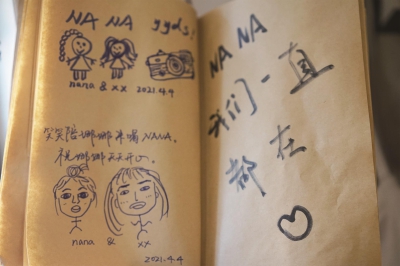 NA NA yyds!
nana & xx 2021.4.9
笑笑陪娜娜来喝NANA.
祝娜娜天天开心.
nana & xx
2021.4.4
NA NA
我们一直
都在